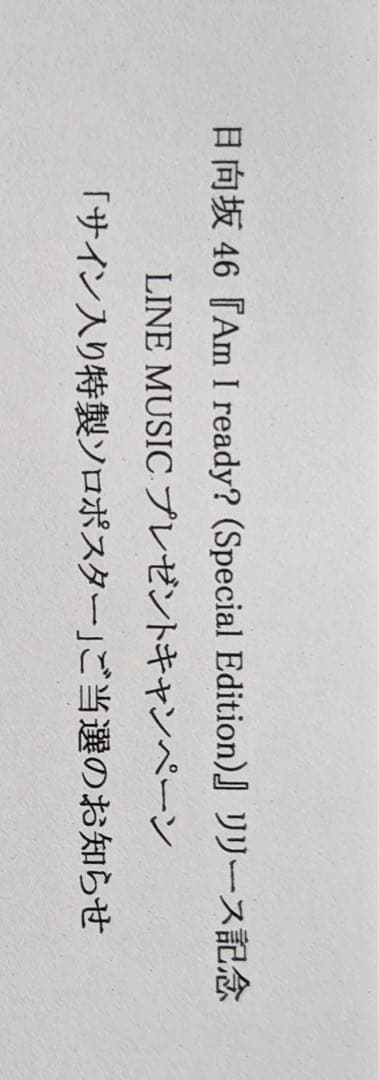 日向坂 46『Am I ready? (Special Edition)』リリース記念
LINE MUSIC プレゼントキャンペーン
「サイン入り特製ソロポスター」ご当選のお知らせ